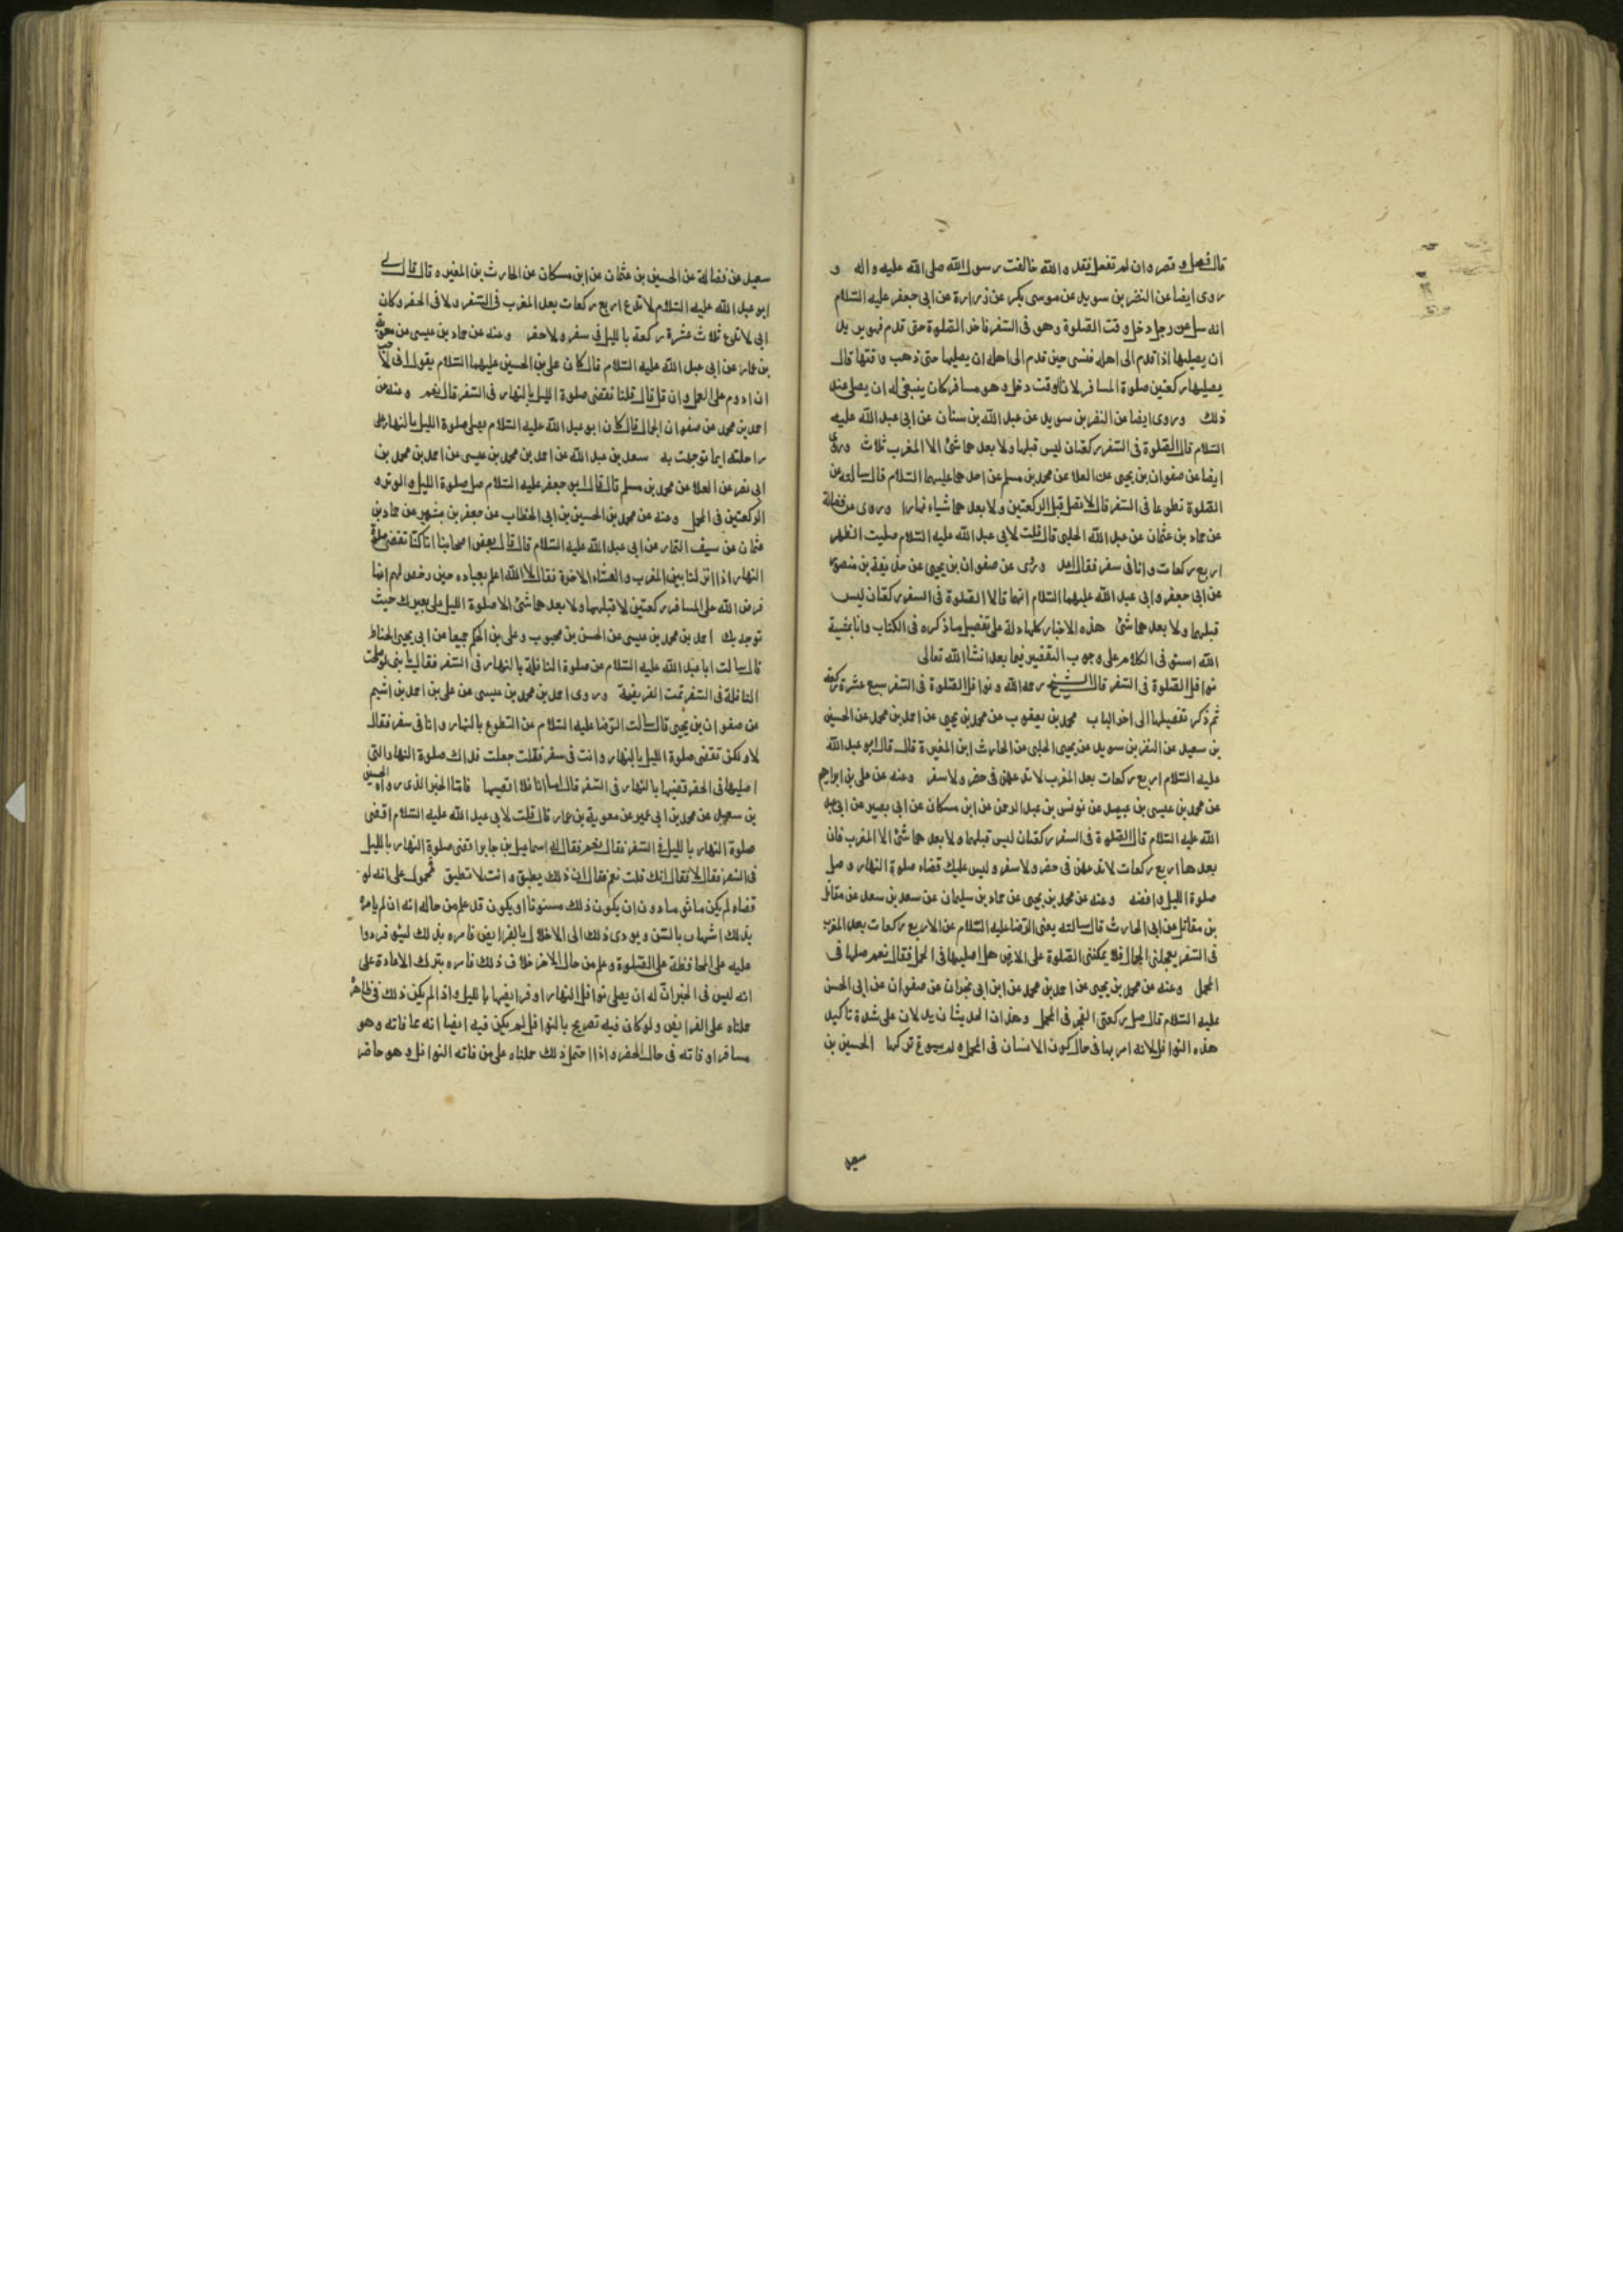 قال فصل و قصر و ان لم تفعل فقد و الله خالفت رسول الله صلى الله عليه و اله و
روى ايضا عن النضر بن سويد عن موسى بكر عن زرارة عن ابى جعفر عليه السلام
انه سئل عن رجل دخل وقت الصلوة وهو فى السفر فاخر الصلوة حتى قدم فهو يريد
ان يصليها اذا قدم الى اهله فنسى حين قدم الى اهله ان يصليها حتى ذهب وقتها قال
يصليها ركعتين صلوة المسافر لان الوقت دخل و هو مسافر كان ينبغى له ان يصلى عند
ذلك وروى ايضا عن النضر بن سويد عن عبد الله بن سنان عن ابى عبد الله عليه
السلام قال الصلوة فى السفر ركعتان ليس قبلهما ولا بعدهما شئ الا المغرب ثلاث وروى
ايضا عن صفوان بن يحيى عن العلا عن محمد بن مسلم عن احدهما عليهما السلام قال سالته عن
الصلوة تطوعا فى السفر قال لا تصل قبل الركعتين ولا بعدهما شياء نهارا وروى عن فضالة
عن حماد بن عثمان عن عبد الله الحلبى قال قلت لابى عبد الله عليه السلام صليت الظهر
اربع ركعات و انا فى سفر فقال اعد وروى عن صفوان بن يحيى عن حذيفة بن منصور
عن ابى جعفر و ابى عبد الله عليهما السلام انهما قالا الصلوة فى السفر ركعتان ليس
قبلهما ولا بعدهما شئ هذه الاخبار كلها دلة على تفصيل ما ذكره فى الكتاب وانا بمشية
الله استوفى الكلام على وجوب التقصير فيما بعد انشا الله تعالى
نوافل الصلوة فى السفر قال الشيخ رحمه الله و نوافل الصلوة فى السفر سبع عشرة ركعة
ثم ذكر تفصيلها الى اخر الباب محمد بن يعقوب عن محمد بن يحيى عن احمد بن محمد عن الحسين
بن سعيد عن النضر بن سويد عن يحيى الحلبى عن الحارث ابن المغيرة قال قال ابو عبد الله
عليه السلام اربع ركعات بعد المغرب لا تدعهن فى حضر ولا سفر وعنه عن على بن ابراهيم
عن محمد بن عيسى بن عبيد عن يونس بن عبد الرحمن عن ابن مسكان عن ابى بصير عن ابى عبد
الله عليه السلام قال الصلوة فى السفر ركعتان ليس قبلهما ولا بعدهما شئ الا المغرب فان
بعدها اربع ركعات لا تدعهن فى حضر ولا سفر و ليس عليك قضاء صلوة النهار و صل
صلوة الليل واقضه وعنه عن محمد بن يحيى عن حماد بن سليمان عن سعد بن سعد عن مقاتل
بن مقاتل عن ابى الحارث قال سالته يعنى الرضا عليه السلام عن الاربع ركعات بعد المغرب
فى السفر يعجلنى الجمال فلا يمكننى الصلوة على الارض هل اصليها فى المحمل فقال نعم صلها فى
المحمل وعنه عن محمد بن يحيى عن احمد بن محمد عن ابن ابى نجران عن صفوان عن ابى الحسن
عليه السلام قال صل ركعتى الفجر فى المحمل وهذان الحديثان يدلان على شدة تاكيد
هذه النوافل لانه امر بها فى حال كون الانسان فى المحمل و لم يسوغ تركها الحسين بن
سعيد
سعيد عن فضالة عن الحسين بن عثمان عن ابن مسكان عن الحارث بن المغيره قال قال لى
ابو عبد الله عليه السلام لا تدع اربع ركعات بعد المغرب فى السفر ولا فى الحضر وكان
ابى لا يدع ثلاث عشرة ركعة بالليل فى سفر ولا حضر وعنه عن حماد بن عيسى عن معوية
بن عمار عن ابى عبد الله عليه السلام قال كان على بن الحسين عليهما السلام يقول انى لاحب
ان ادوم على العمل وان قل قال قلنا نقضى صلوة الليل بالنهار فى السفر قال نعم وعنه عن
احمد بن محمد عن صفوان الجمال قال كان ابو عبد الله عليه السلام يصلى صلوة الليل بالنهار على
راحلته ايما توجهت به سعد بن عبد الله عن احمد بن محمد بن عيسى عن احمد بن محمد بن
ابى نصر عن العلا عن محمد بن مسلم قال قال لى ابو جعفر عليه السلام صل صلوة الليل و الوتر و
الركعتين فى المحمل وعنه عن محمد بن الحسين بن ابى الخطاب عن جعفر بن بشير عن حماد بن
عثمان عن سيف التمار عن ابى عبد الله عليه السلام قال قال بعض اصحابنا انا كنا نقضى صلوة
النهار اذا انزلنا بين المغرب و العشاء الاخرة فقال لا الله اعلم بعباده حين رخص لهم انما
فرض الله على المسافر ركعتين لا قبلهما ولا بعدهما شئ الا صلوة الليل على بعيرك حيث
توجه بك احمد بن محمد بن عيسى عن الحسن بن محبوب و على بن الحكم جميعا عن ابى يحيى الحناط
قال سالت ابا عبد الله عليه السلام عن صلوة النافلة بالنهار فى السفر فقال يا بنى لو صلحت
النافلة فى السفر تمت الفريضة وروى احمد بن محمد بن عيسى عن على بن احمد بن اشيم
عن صفوان بن يحيى قال سالت الرضا عليه السلام عن التطوع بالنهار و انا فى سفر فقال
لا ولكن تقضى صلوة الليل بالنهار و انت فى سفر فقلت جعلت فداك صلوة النهار التى
اصليها فى الحضر اقضيها بالنهار فى السفر قال اما انا فلا اقضيها فاما الخبر الذى رواه الحسين
بن سعيد عن محمد بن ابى عمير عن معوية بن عمار قال قلت لابى عبد الله عليه السلام اقضى
صلوة النهار بالليل فى السفر فقال نعم فقال له اسماعيل بن جابر اقضى صلوة النهار بالليل
فى السفر فقال لا فقال انك قلت نعم فقال ان ذلك يطيق و انت لا تطيق فمحمول على انه لو
قضاه لم يكن ماثوما دون ان يكون ذلك مسنونا او يكون قد علم من حاله انه ان لم يامره
بذلك بالسنن ويودى ذلك الى الاخلال بالفرايض فامره بذلك
عليه على المحافظة على الصلوة و علم من حال الاخر خلاف ذلك فامره بترك الاعادة على
انه ليس فى الخبر ان له ان يصلى نوافل النهار او فرايضها بالليل و اذا لم يكن ذلك فى ظاهره
حملناه على الفرايض ولو كان فيه تصريح بالنوافل لم يكن فيه ايضا انه عما فاته وهو
مسافر او فاته فى حال الحضر و اذا احتمل ذلك حملناه على من فاته النوافل و هو حاضر